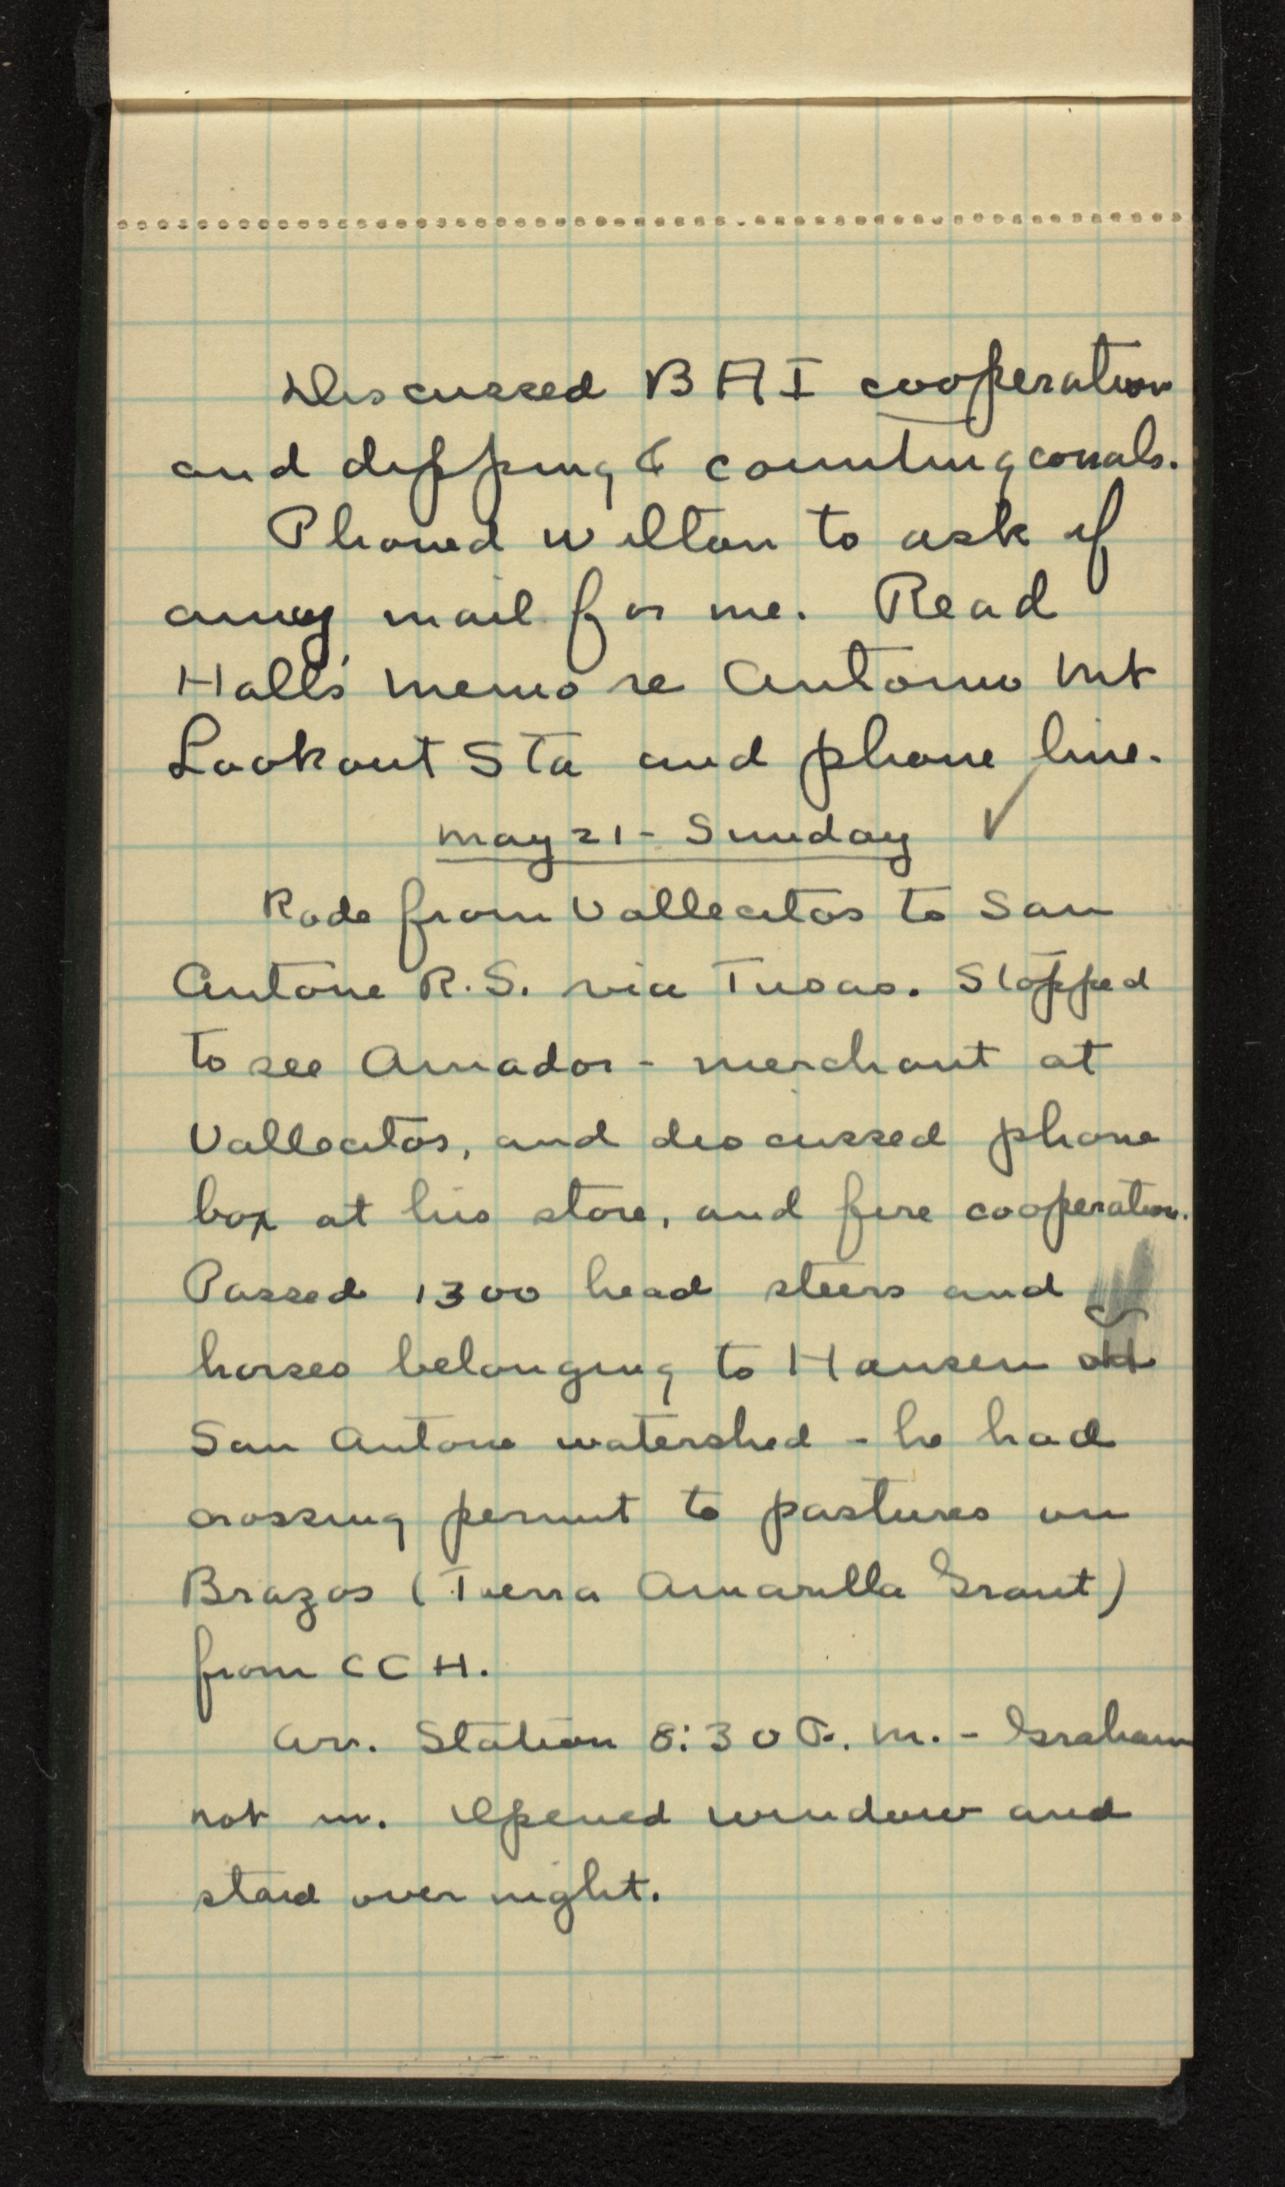 Discussed BAI cooperation
and dipping & counting corrals.
Phoned Wilton to ask if
any mail for me. Read
Hall's memo re Antonio Mt
Lookout Sta and phone line.
May 21 - Sunday ✓
Rode from Vallecitos to San
Antone R.S. via Tusas. Stopped
to see Amador - merchant at
Vallecitos, and discussed phone
box at his store, and fire cooperation.
Passed 1300 head steers and
horses belonging to Hansen
San Antone watershed - he had
crossing permit to pastures on
Brazos (Tierra Amarilla Grant)
from CCH.
Arr. Station 8:30 P.M. - Graham
not in. Opened window and
staid over night.